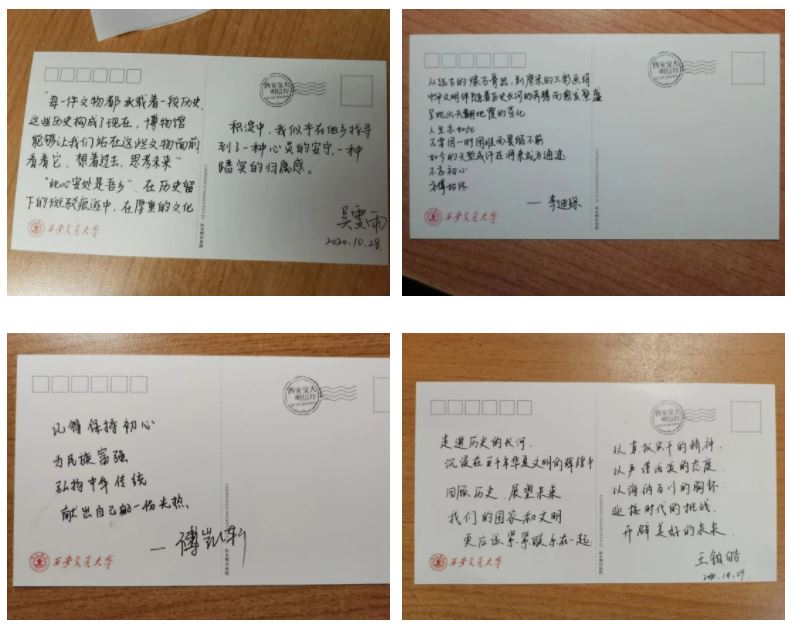 西安交大
明信片
"每一件文物都承载着一段历史,
这些历史构成了现在,博物馆
能够让我们站在这些文物面前
看着它,想着过去,思考未来"
"此心安处是吾乡",在历史留
下的斑驳痕迹中,在厚重的文化
积淀中,我似乎在他乡找寻
到了一种心灵的安宁,一种
踏实的归属感。
吴雯雨
2020.10.28
西安交通大学
西安交大
明信片
从远古的燧石骨器,到唐宋的三彩画绢
中华文明伴随着历史长河的奔腾而愈发繁盛
呈现出天翻地覆的变化
人生亦如此
不常因一时困难而畏缩不前
如今的天堑或许在将来成为通途
不忘初心
方得始终
西安交通大学
西安交大
明信片
记得保持初心
为民族富强
弘扬中华传统
献出自己的一份光热
—傅凯新
西安交通大学
西安交大
明信片
走进历史的长河,
沉浸在五千年华夏文明的辉煌中
回顾历史,展望未来
我们的国家和文明
更应该紧紧联系在一起.
以真抓实干的精神,
以严谨治学的态度,
以海纳百川的胸怀
迎接时代的挑战,
开辟美好的未来.
西安交通大学